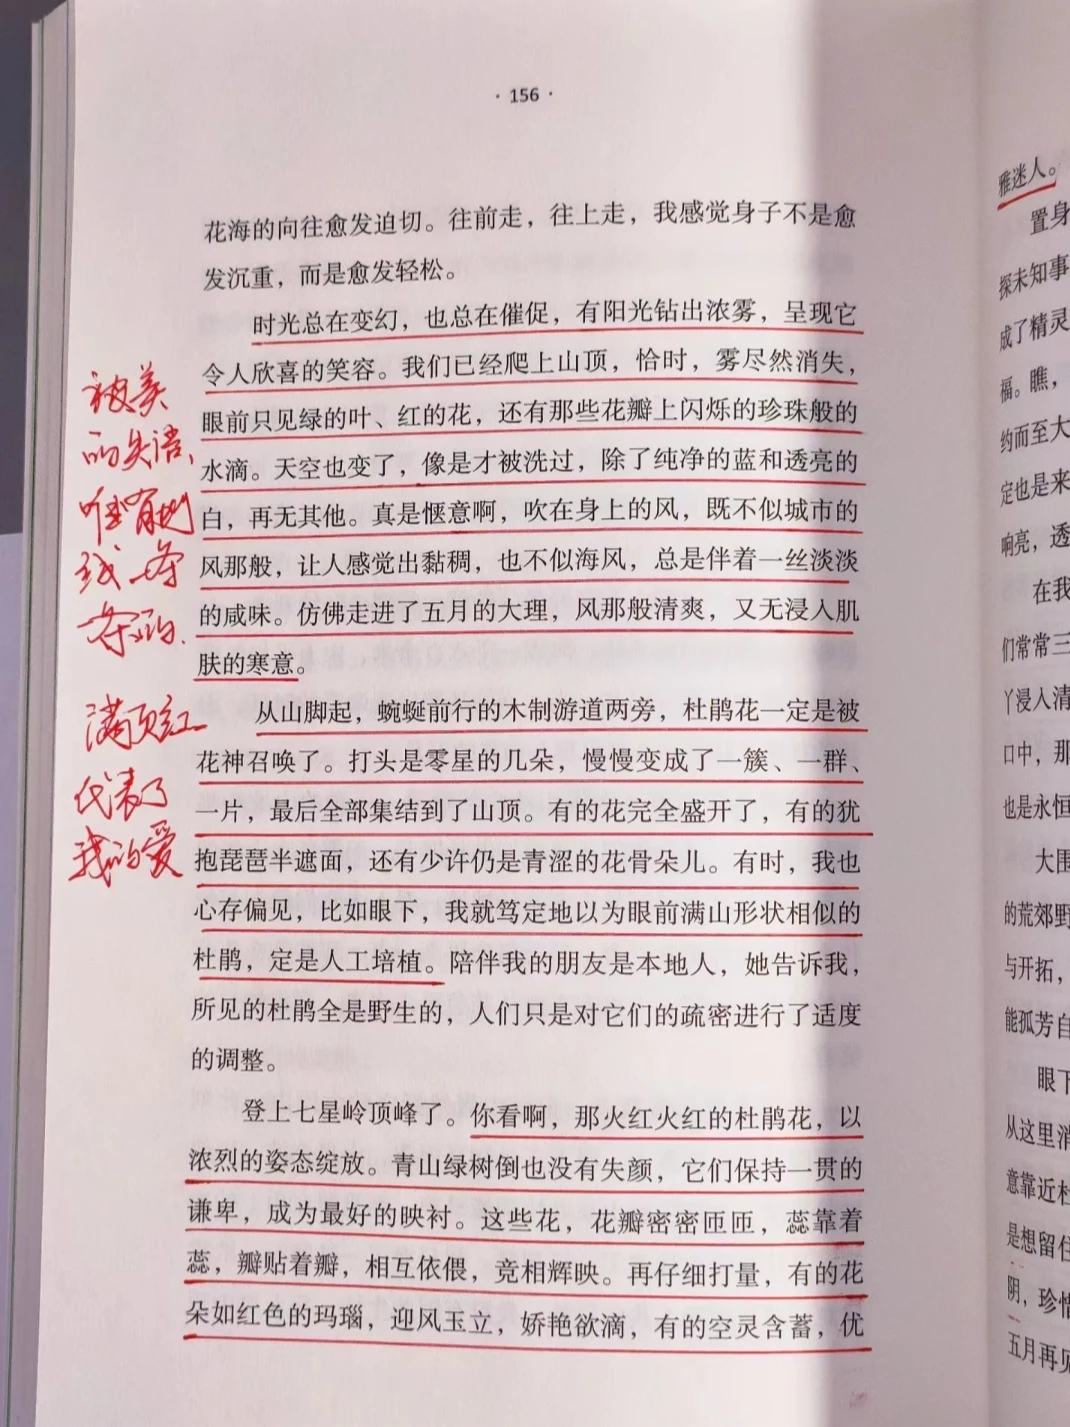 · 156 ·
花海的向往愈发迫切。往前走，往上走，我感觉身子不是愈
发沉重，而是愈发轻松。
时光总在变幻，也总在催促，有阳光钻出浓雾，呈现它
令人欣喜的笑容。我们已经爬上山顶，恰时，雾尽然消失，
眼前只见绿的叶、红的花，还有那些花瓣上闪烁的珍珠般的
水滴。天空也变了，像是才被洗过，除了纯净的蓝和透亮的
白，再无其他。真是惬意啊，吹在身上的风，既不似城市的
风那般，让人感觉出黏稠，也不似海风，总是伴着一丝淡淡
的咸味。仿佛走进了五月的大理，风那般清爽，又无浸入肌
肤的寒意。
从山脚起，蜿蜒前行的木制游道两旁，杜鹃花一定是被
花神召唤了。打头是零星的几朵，慢慢变成了一簇、一群、
一片，最后全部集结到了山顶。有的花完全盛开了，有的犹
抱琵琶半遮面，还有少许仍是青涩的花骨朵儿。有时，我也
心存偏见，比如眼下，我就笃定地以为眼前满山形状相似的
杜鹃，定是人工培植。陪伴我的朋友是本地人，她告诉我，
所见的杜鹃全是野生的，人们只是对它们的疏密进行了适度
的调整。
登上七星岭顶峰了。你看啊，那火红火红的杜鹃花，以
浓烈的姿态绽放。青山绿树倒也没有失颜，它们保持一贯的
谦卑，成为最好的映衬。这些花，花瓣密密匝匝，蕊靠着
蕊，瓣贴着瓣，相互依偎，竞相辉映。再仔细打量，有的花
朵如红色的玛瑙，迎风玉立，娇艳欲滴，有的空灵含蓄，优
被美
的失语，
唯有划
线一条
条的.
满页红
代表了
我的爱
雅迷人。
置身
探未知事
成了精灵
福。瞧，
约而至大
定也是来
响亮，透
在我
们常常三
丫浸入清
口中，那
也是永恒
大围
的荒郊野
与开拓，
能孤芳自
眼下
从这里消
意靠近杜
是想留住
阴，珍惜
五月再见